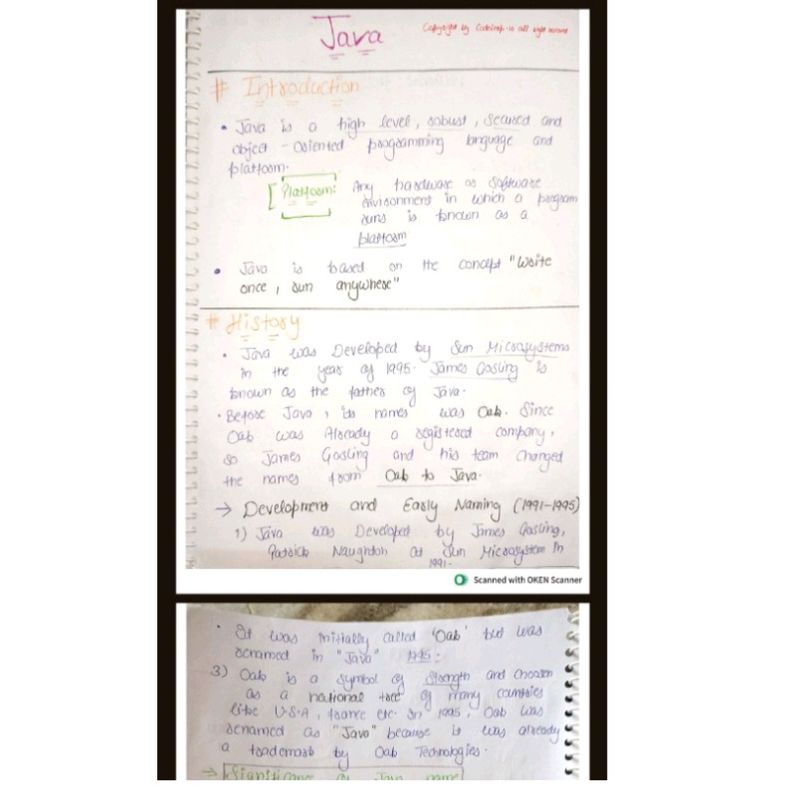 Java
Copyright by
# Introduction
• Java is a high level, robust, secured and
object - oriented programming language and
platform.
[Platform: Any hardware or software
environment in which a program
runs is known as a
platform
• Java is based on the concept "write
once, run anywhere"
# History
• Java was Developed by Sun Microsystems
in the year of 1995. James Gosling is
known as the father of Java.
• Before Java, its names was Oak. Since
Oak was Already a registered company,
so James Gosling and his team changed
the names from Oak to Java.
→ Development and Early Naming (1991-1995)
1) Java was Developed by James Gosling,
Patrick Naughton at Sun Microsystem in
1991.
Scanned with OKEN Scanner
• It was initially called 'Oak' but was
renamed in "Java" 1995.
3) Oak is a symbol of strength and choosen
as a national tree of many countries
like U.S.A, france etc. In 1995, Oak was
renamed as "Java" because it was already
a trademark by Oak Technologies.
→ Significance of Java name